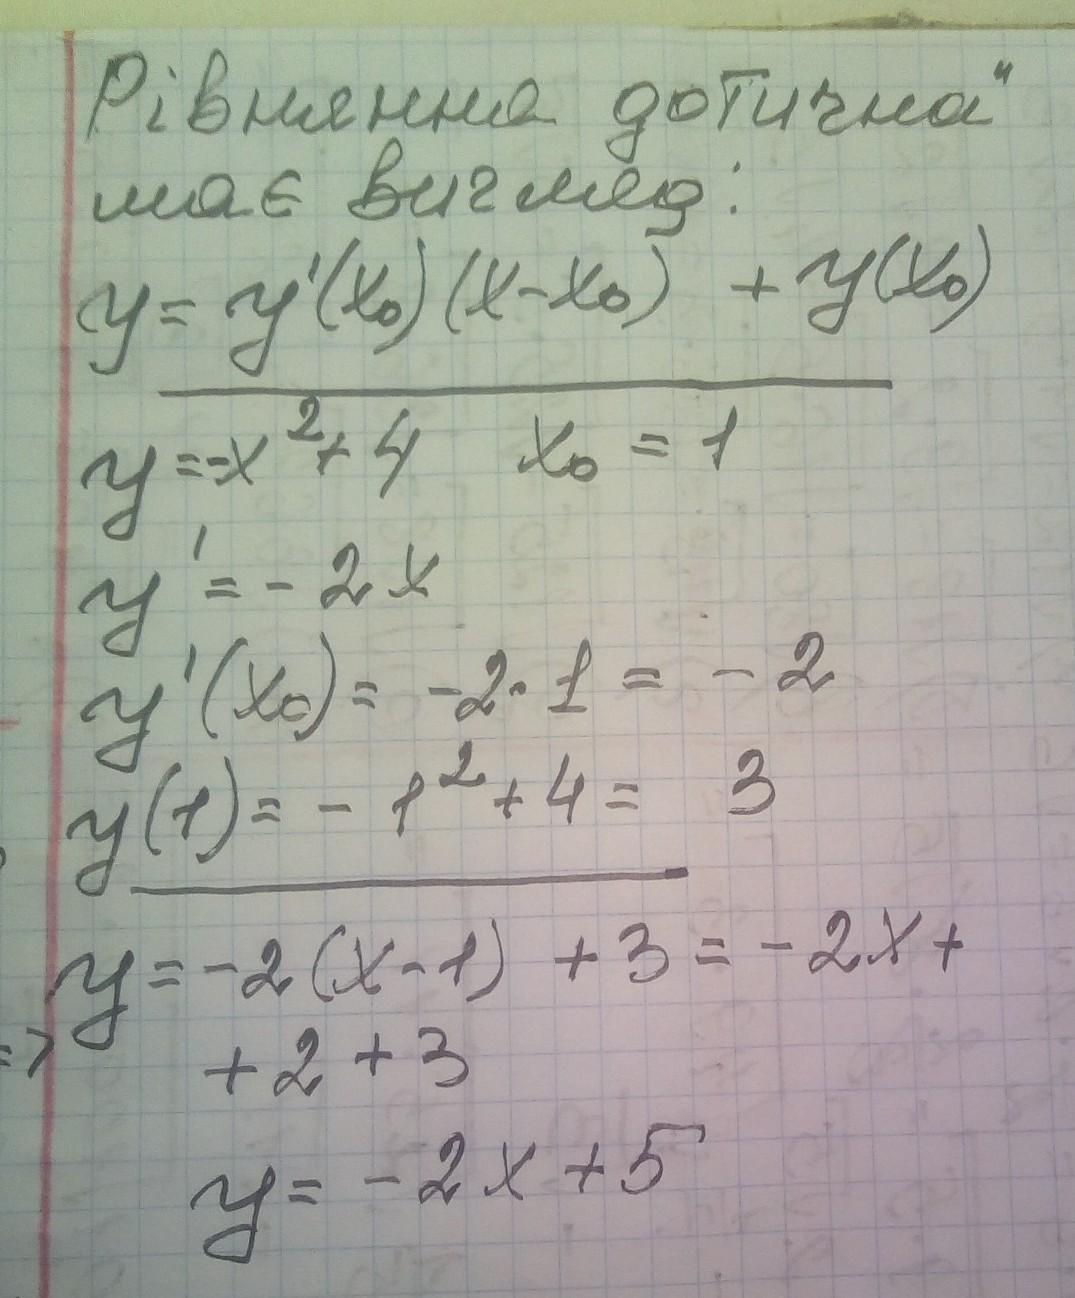 Рівняння дотична"
має вигляд:
y = y'(x₀)(x-x₀) + y(x₀)
y = -x² + 4 x₀ = 1
y' = - 2x
y'(x₀) = -2·1 = - 2
y(1) = - 1² + 4 = 3
y = -2(x-1) + 3 = -2x +
=> + 2 + 3
y = -2x + 5